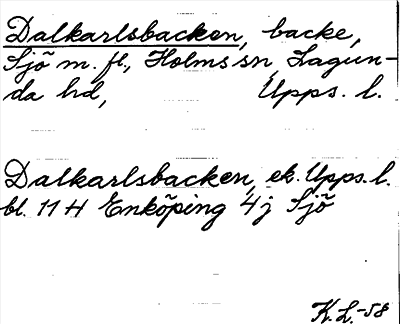 Dalkarlsbacken, backe,
Sjö m. fl., Holms sn, Lagun-
da hd, Upps. l.
Dalkarlsbacken, ek. Upps. l.
bl. 11 H Enköping 4j Sjö
K.L.-58